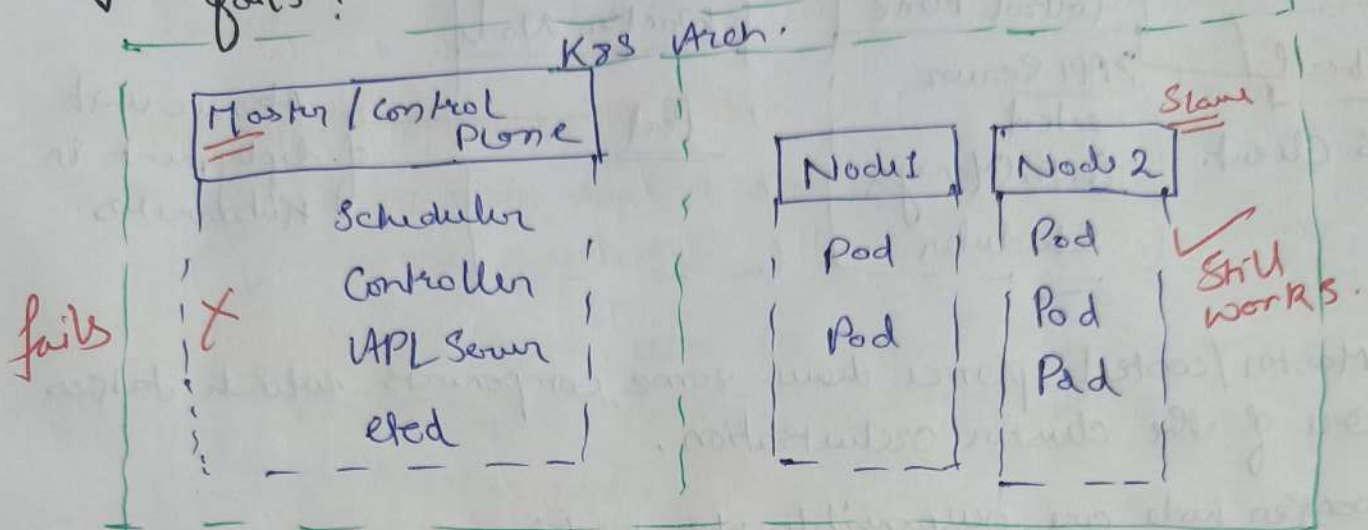 fails?
K8S Arch.
Master / Control
Plane
Scheduler
Controller
API Server
etcd
fails
Node1
Pod
Pod
Node 2
Pod
Pod
Pod
Slave
Still
works.